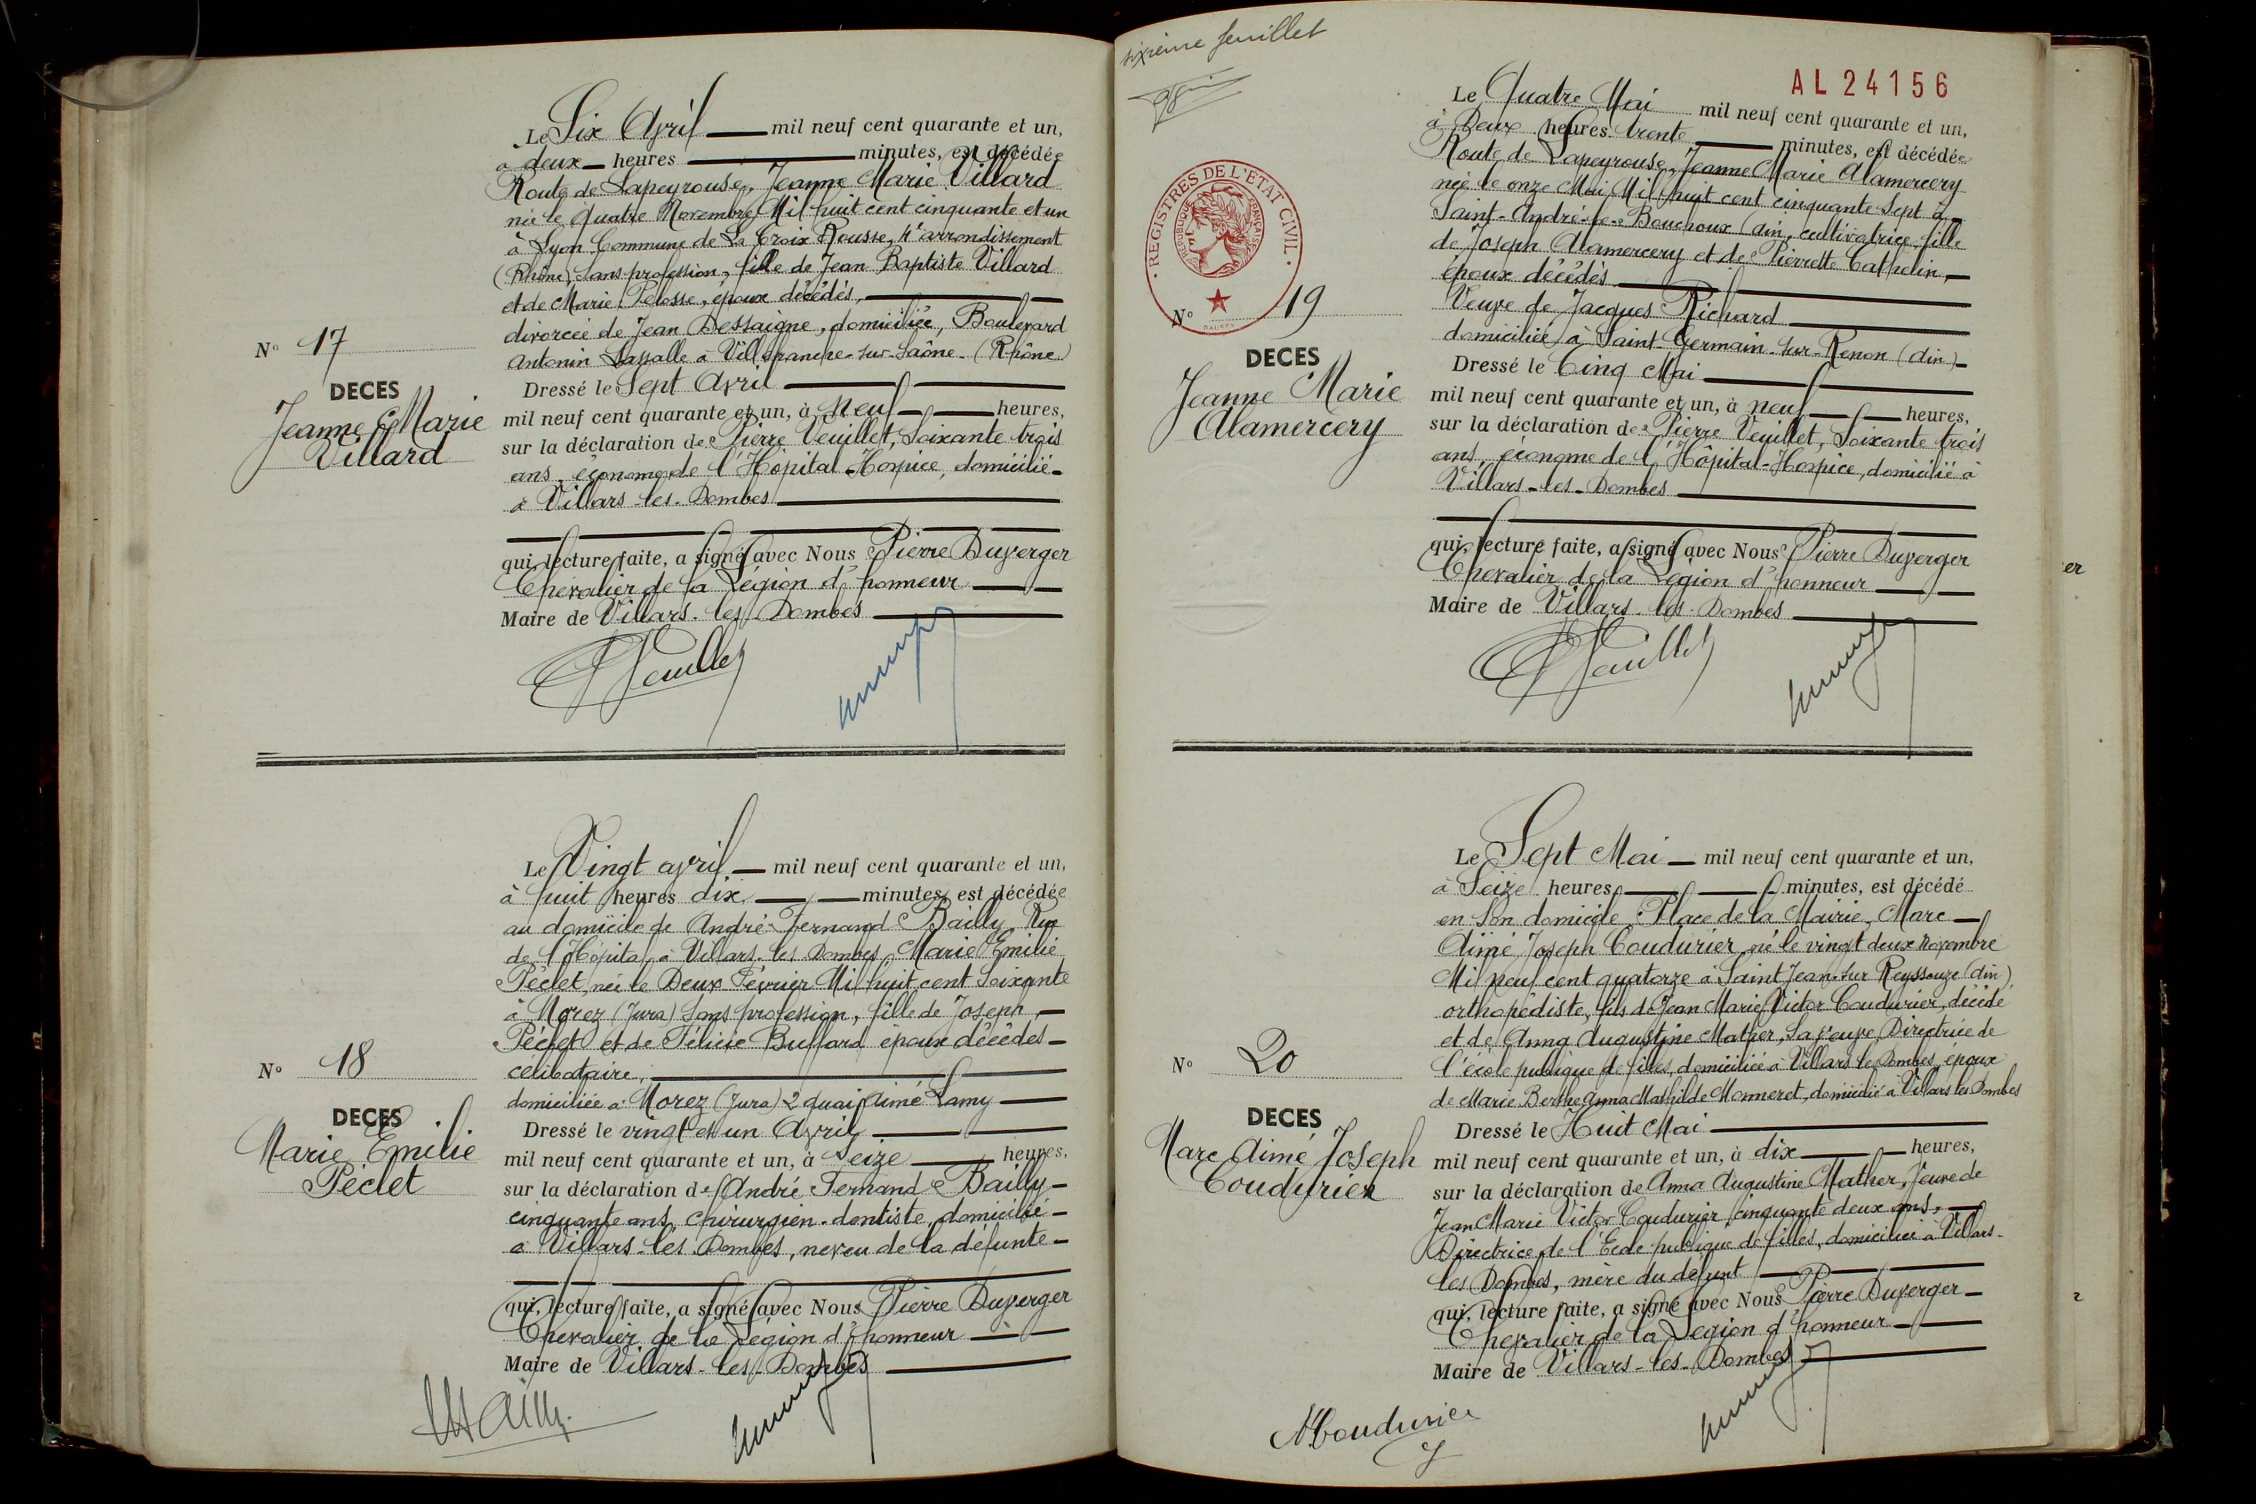 Le Six Avril mil neuf cent quarante et un,
à deux heures minutes, est décédée
Route de Lapeyrouse, Jeanne Marie Villard
née le quatre Novembre Mil huit cent cinquante et un
à Lyon Commune de La Croix Rousse, 4e arrondissement
(Rhône), sans profession, fille de Jean Baptiste Villard
et de Marie Pelosse, époux décédés,
divorcée de Jean Dessaigne, domiciliée, Boulevard
Antonin Lassalle à Villefranche-sur-Saône (Rhône)
N° 17
DECES
Jeanne Marie
Villard
Dressé le Sept Avril
mil neuf cent quarante et un, à neuf heures,
sur la déclaration de Pierre Veuillet, Soixante trois
ans, économe de l'Hôpital-Hospice, domicilié
à Villars-les-Dombes
qui, lecture faite, a signé avec Nous Pierre Duverger
Chevalier de la Légion d'honneur
Maire de Villars-les-Dombes
Veuillet
Le Vingt avril mil neuf cent quarante et un,
à huit heures dix minutes, est décédée
au domicile de André Fernand Bailly, Rue
de l'Hôpital à Villars-les-Dombes, Marie Emilie
Péclet, née le Deux Février Mil huit cent soixante
à Morez (Jura) sans profession, fille de Joseph
Péclet et de Félicie Buffard époux décédés
célibataire,
domiciliée à Morez (Jura) 2 quai Aimé Lamy
N° 18
DECES
Marie Emilie
Péclet
Dressé le vingt et un Avril
mil neuf cent quarante et un, à seize heures,
sur la déclaration de André Fernand Bailly
cinquante ans, chirurgien-dentiste, domicilié
à Villars-les-Dombes, neveu de la défunte
qui, lecture faite, a signé avec Nous Pierre Duverger
Chevalier de la Légion d'honneur
Maire de Villars-les-Dombes
sixième feuillet
AL 24156
REGISTRES DE L'ETAT CIVIL
REPUBLIQUE FRANÇAISE
Le Quatre Mai mil neuf cent quarante et un,
à Deux heures trente minutes, est décédée
Route de Lapeyrouse, Jeanne Marie Alamercery
née le onze Mai Mil huit cent cinquante sept à
Saint-André-le-Bouchoux (Ain, cultivatrice, fille
de Joseph Alamercery et de Pierrette Cathelin,
époux décédés
Veuve de Jacques Richard
domiciliée à Saint-Germain-sur-Renon (Ain)
N° 19
DECES
Jeanne Marie
Alamercery
Dressé le Cinq Mai
mil neuf cent quarante et un, à neuf heures,
sur la déclaration de Pierre Veuillet, Soixante trois
ans, économe de l'Hôpital-Hospice, domicilié à
Villars-les-Dombes
qui, lecture faite, a signé avec Nous Pierre Duverger
Chevalier de la Légion d'honneur
Maire de Villars-les-Dombes
Veuillet
Le Sept Mai mil neuf cent quarante et un,
à Seize heures minutes, est décédé
en son domicile Place de la Mairie, Marc
Aimé Joseph Coudurier né le vingt deux Novembre
Mil neuf cent quatorze à Saint Jean sur Reyssouze (Ain)
orthopédiste, fils de Jean Marie Victor Coudurier, décédé
et de Anna Augustine Mather, sa veuve, Directrice de
l'école publique de filles, domiciliée à Villars les Dombes, époux
de Marie Berthe Anna Mathilde Monneret, domicilié à Villars les Dombes
N° 20
DECES
Marc Aimé Joseph
Coudurier
Dressé le Huit Mai
mil neuf cent quarante et un, à dix heures,
sur la déclaration de Anna Augustine Mather, Veuve de
Jean Marie Victor Coudurier, cinquante deux ans,
Directrice de l'Ecole publique de filles, domiciliée à Villars-
les Dombes, mère du défunt
qui, lecture faite, a signé avec Nous Pierre Duverger
Chevalier de la Légion d'honneur
Maire de Villars-les-Dombes
Coudurier
er